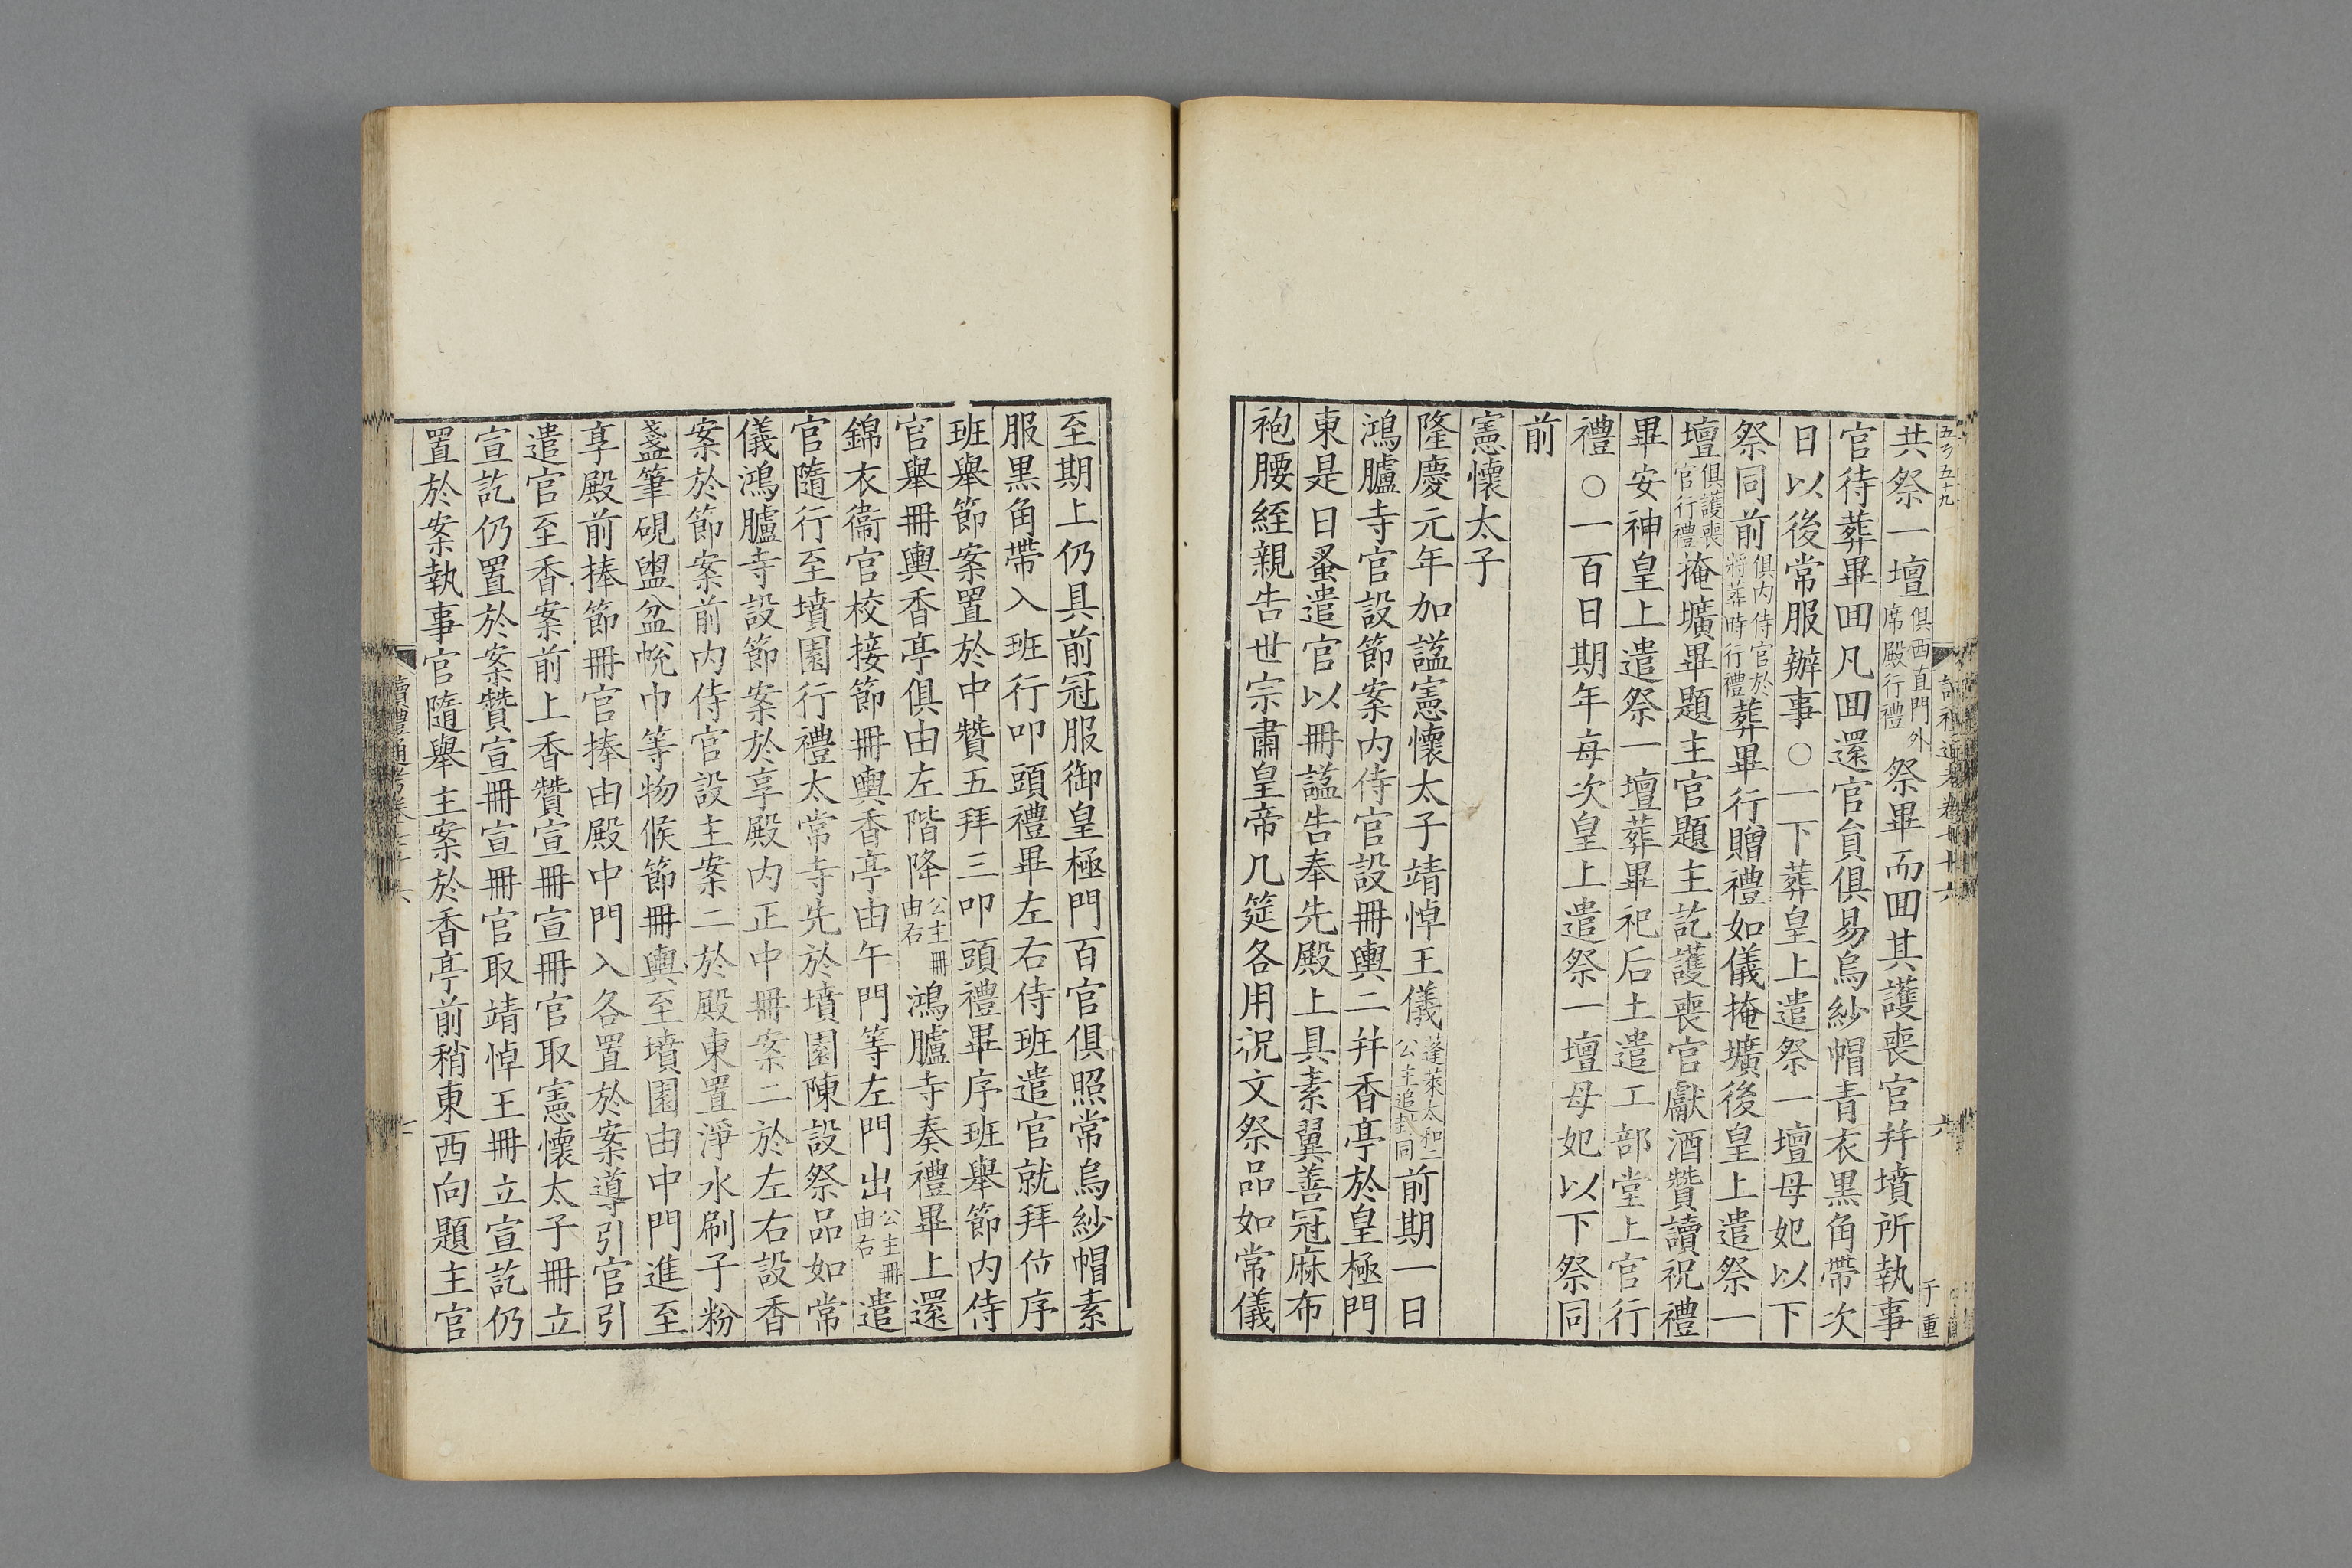 共祭一壇俱西直門外席殿行禮祭畢而囬其護喪官幷墳所執事
官待葬畢囬凡囬還官員俱易烏紗帽青衣黑角帶次
日以後常服辦事○一下葬皇上遣祭一壇母妃以下
祭同前俱內侍官於將葬時行禮葬畢行贈禮如儀掩壙後皇上遣祭一
壇俱護喪官行禮掩壙畢題主官題主訖護喪官獻酒贊讀祝禮
畢安神皇上遣祭一壇葬畢祀后土遣工部堂上官行
禮○一百日期年每次皇上遣祭一壇母妃以下祭同
前
憲懷太子
隆慶元年加諡憲懷太子靖悼王儀蓬萊太和二公主追封同前期一日
鴻臚寺官設節案內侍官設冊輿二幷香亭於皇極門
東是日蚤遣官以冊諡告奉先殿上具素翼善冠麻布
袍腰絰親告世宗肅皇帝几筵各用祝文祭品如常儀
至期上仍具前冠服御皇極門百官俱照常烏紗帽素
服黑角帶入班行叩頭禮畢左右侍班遣官就拜位序
班舉節案置於中贊五拜三叩頭禮畢序班舉節內侍
官舉冊輿香亭俱由左階降公主冊由右鴻臚寺奏禮畢上還
錦衣衞官校接節冊輿香亭由午門等左門出公主冊由右遣
官隨行至墳園行禮太常寺先於墳園陳設祭品如常
儀鴻臚寺設節案於享殿內正中冊案二於左右設香
案於節案前內侍官設主案二於殿東置淨水刷子粉
盞筆硯盥盆帨巾等物候節冊輿至墳園由中門進至
享殿前捧節冊官捧由殿中門入各置於案導引官引
遣官至香案前上香贊宣冊宣冊官取憲懷太子冊立
宣訖仍置於案贊宣冊宣冊官取靖悼王冊立宣訖仍
置於案執事官隨舉主案於香亭前稍東西向題主官